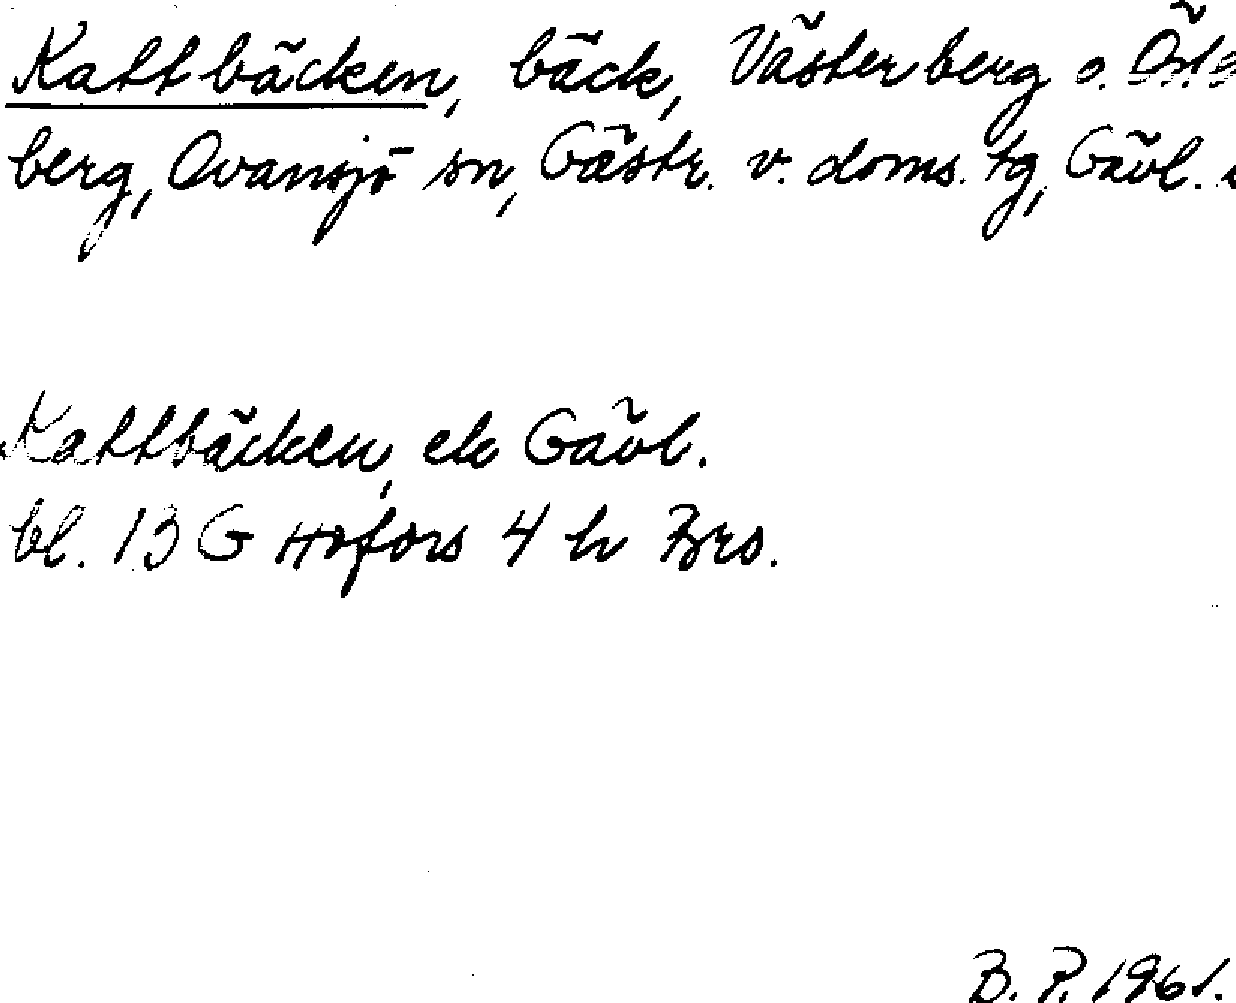 Kattbäcken, bäck, Västerberg o. Öster
berg, Ovansjö sn, Gästr. v. doms. tg, Gävl.
Kattbäcken, ek Gävl.
bl. 13 G Hofors 4 h Bro.
B. P. 1961.